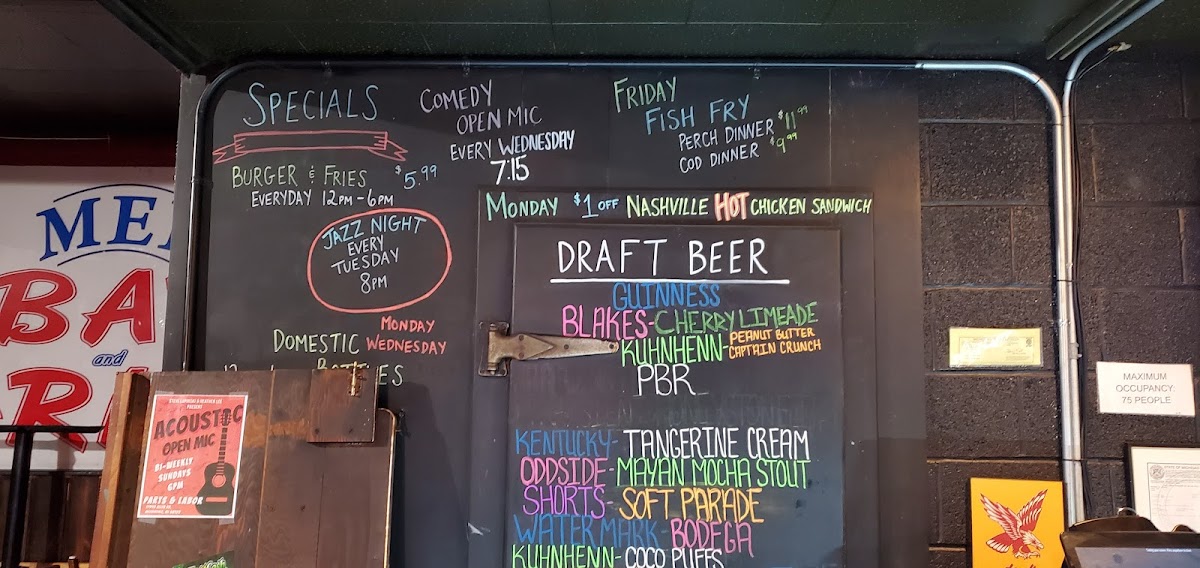 SPECIALS
BURGER & FRIES $5.99
EVERYDAY 12PM-6PM
JAZZ NIGHT
EVERY
TUESDAY
8PM
DOMESTIC
MONDAY
WEDNESDAY
COMEDY
OPEN MIC
EVERY WEDNESDAY
7:15
FRIDAY
FISH FRY
PERCH DINNER $11.99
COD DINNER $9.99
MONDAY $1 OFF NASHVILLE HOT CHICKEN SANDWICH
DRAFT BEER
GUINNESS
BLAKES-CHERRY LIMEADE
KUHNHENN-PEANUT BUTTER
CAPTAIN CRUNCH
PBR
KENTUCKY-TANGERINE CREAM
ODDSIDE-MAYAN MOCHA STOUT
SHORTS-SOFT PARADE
WATERMARK-BODEGA
KUHNHENN-COCO PUFFS
and
PRESENT
ACOUSTIC
OPEN MIC
BI-WEEKLY
SUNDAYS
6PM
PARTS & LABOR
MAXIMUM
OCCUPANCY:
75 PEOPLE